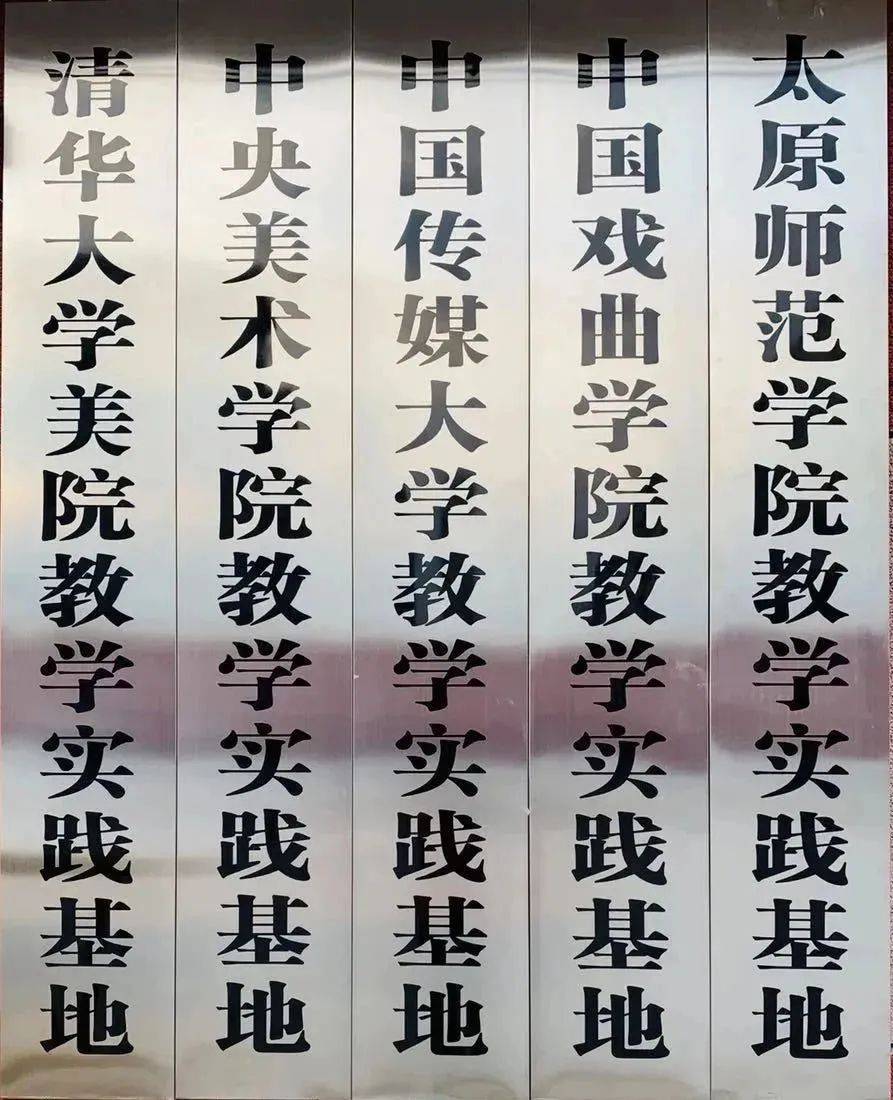 清华大学美院教学实践基地
中央美术学院教学实践基地
中国传媒大学教学实践基地
中国戏曲学院教学实践基地
太原师范学院教学实践基地